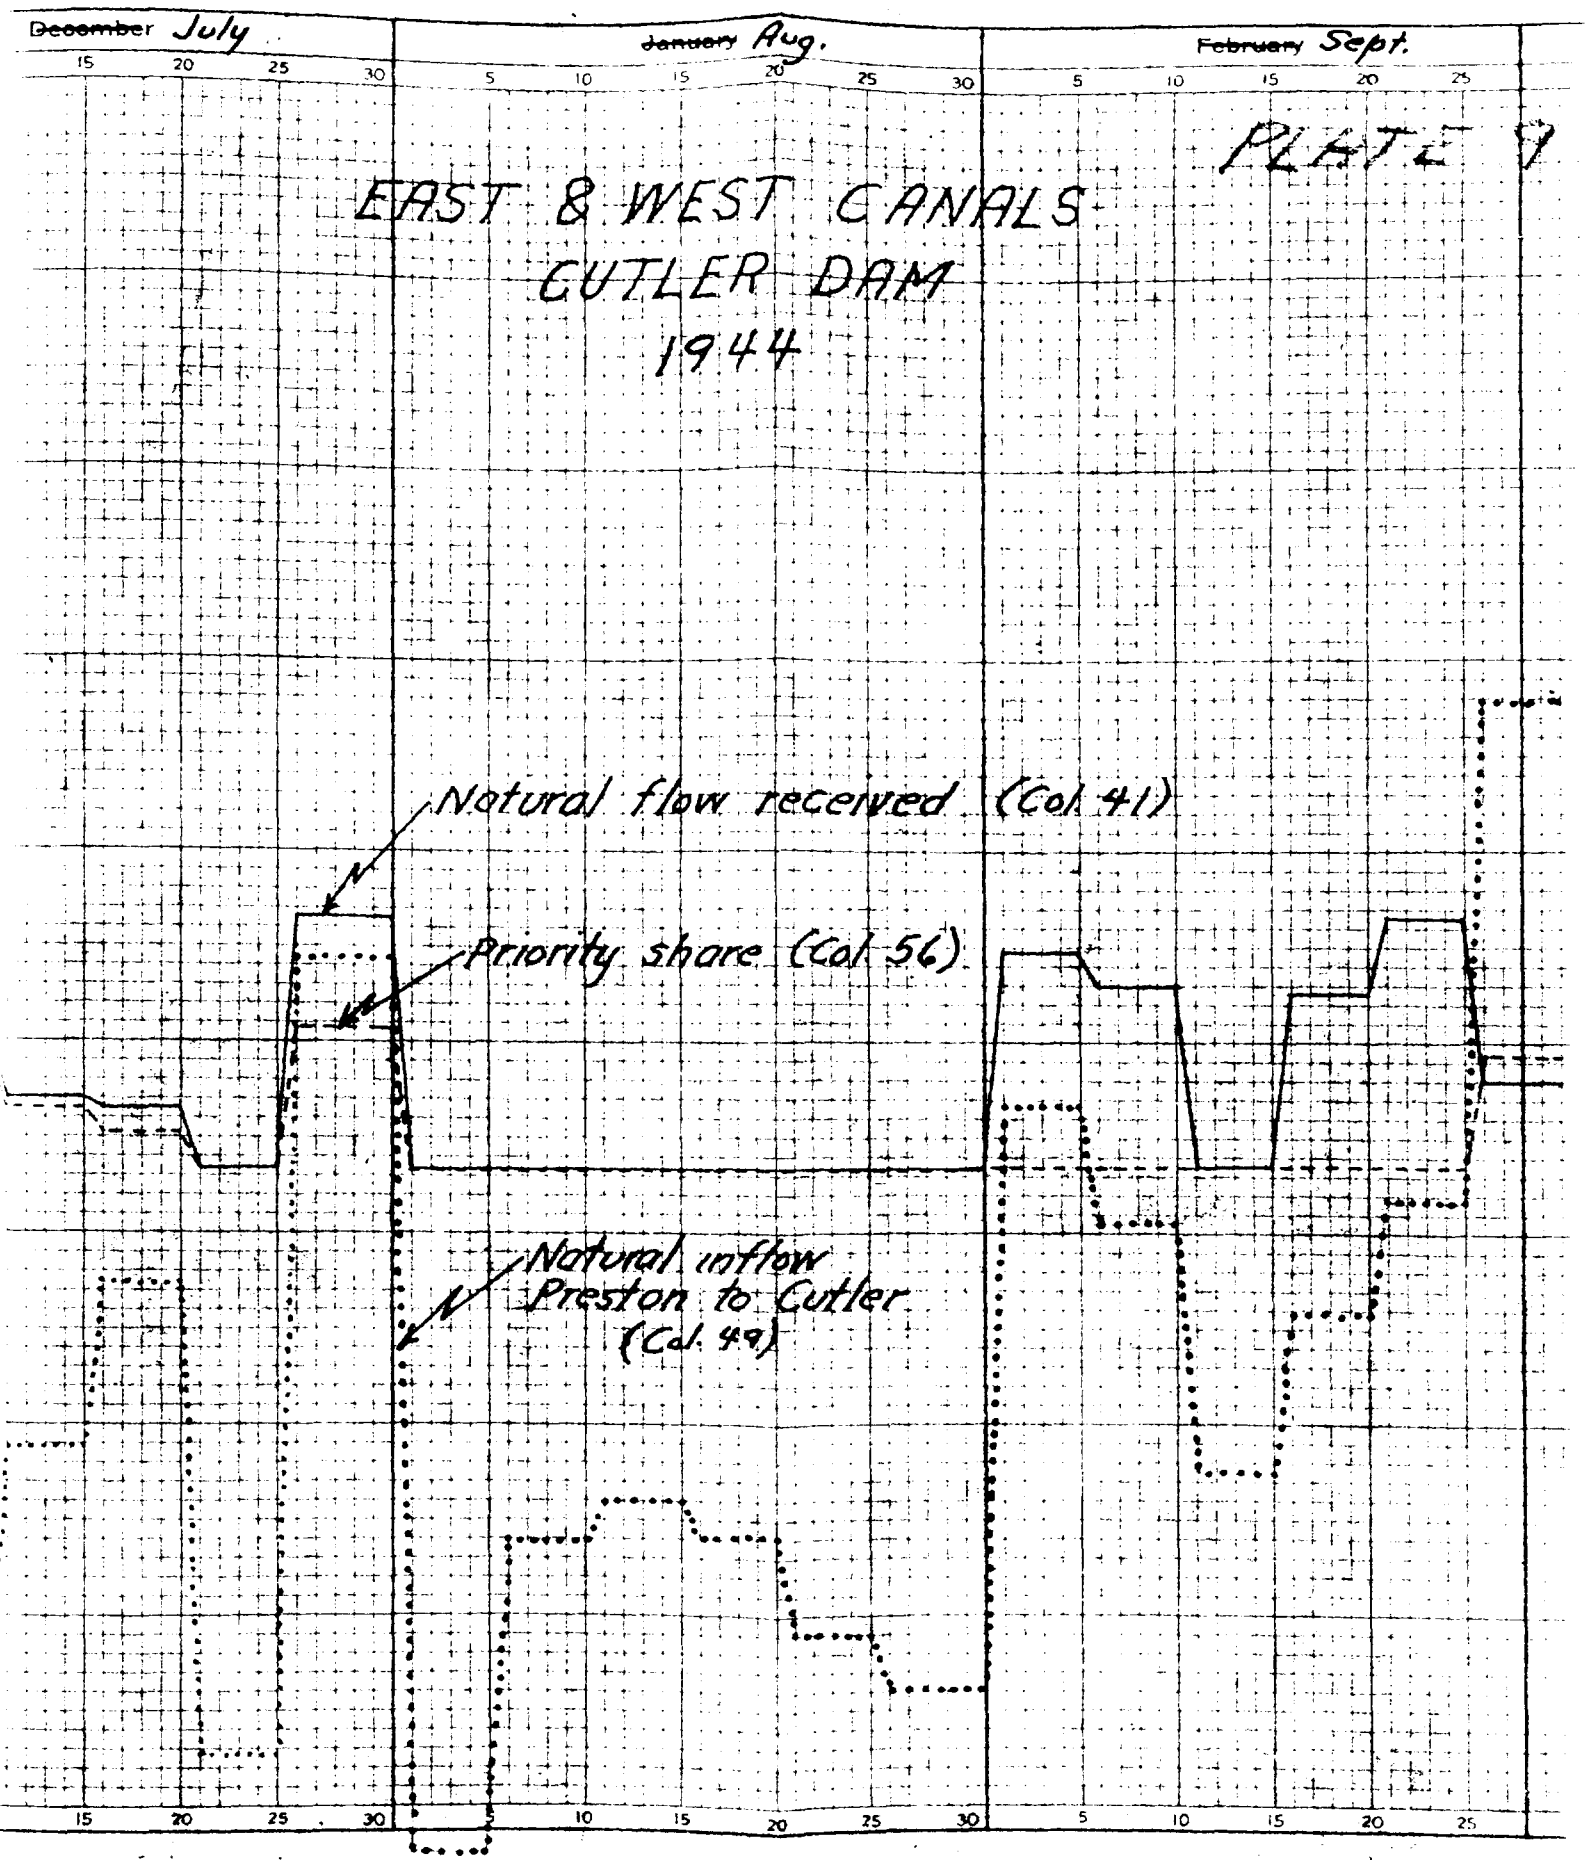 December July
January Aug.
February Sept.
15 20 25 30 5 10 15 20 25 30 5 10 15 20 25
PLATE 9
EAST & WEST CANALS
CUTLER DAM
1944
Natural flow received (Col. 41)
Priority share (Col. 56)
Natural inflow
Preston to Cutler
(Col. 49)
15 20 25 30 5 10 15 20 25 30 5 10 15 20 25